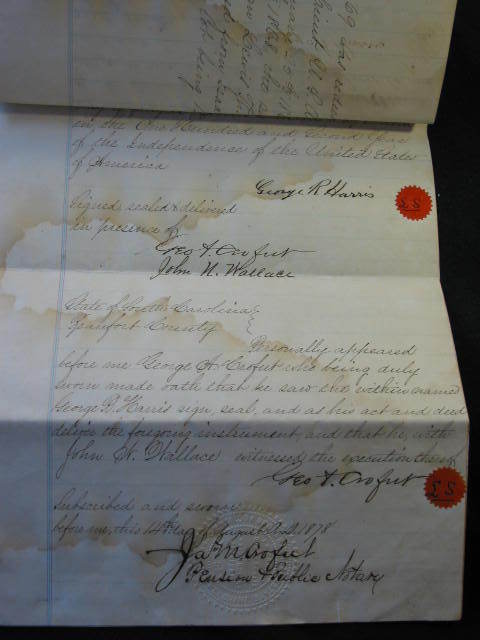 in the One Hundred and Second Year
of the Independence of the United State
of America
George R Harris
Signed sealed & delivered
in presence of
Geo A. Crofut
John N. Wallace
State of South Carolina
Beaufort County
Personally appeared
before me George A. Crofut who being duly
sworn made oath that he saw the within named
George R. Harris sign, seal, and as his act and deed
deliver the foregoing instrument, and that he, with
John N. Wallace witnessed the execution thereof
Geo A. Crofut
Subscribed and sworn
before me, this 14th day of August A.D. 1878
Jas M Crofut
Pension & Public Notary